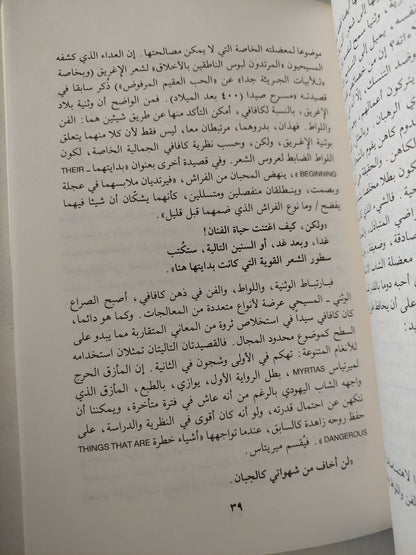 موضوعا لمعضلته الخاصة التي لا يمكن مصالحتها. إن العداء الذي كشفه
المسيحيون «المرتدون لبوس الناطقين بالأخلاق» لشعر الإغريق (وبخاصة
للأبيات الجريئة جدا» عن «الحب العقيم المرفوض») ذُكر سابقا في
قصيدته «مسرح صيدا (٤٠٠ بعد الميلاد). فمن الواضح أن وثنية بلاد
الإغريق، بالنسبة لكافافي، أمكن التأكد منها عن طريق شيئين هما: الفن
واللواط. فهذان، بدورهما، مرتبطان معا، ليس فقط لأن كلا منهما يتعلق
بوثنية الإغريق، ولكن، وحسب نظرية كافافي الجمالية الخاصة، لكون
اللواط الضابط لعروس الشعر. وفي قصيدة أخرى بعنوان «بدايتهما ـ THEIR
BEGINNING»، ينهض المحبان من الفراش، «فيرتديان ملابسهما في عجلة
وبصمت، وينطلقان منفصلين ومتسللين، كأنهما يشكّان أن شيئا فيهما
يفضح / وما نوع الفراش الذي ضمهما قبل قليل».
«ولكن، كيف اغتنت حياة الفنان!
غدا، وبعد غد، أو السنين التالية، ستُكتب
سطور الشعر القوية التي كانت بدايتها هنا».
فبارتباط الوثنية، واللواط، والفن في ذهن كافافي، أصبح الصراع
الوثني ـ المسيحي عرضة لأنواع متعددة من المعالجات. وكما هو دائما،
كان كافافي سيداً في استخلاص ثروة من المعاني المتقاربة مما يبدو على
السطح كموضوع محدود المجال. فالقصيدتان التاليتان تمثلان استخدامه
للأنغام المتنوعة: تهكم في الأولى وشجون في الثانية. إن المأزق الحرج
لميرتياس MYRTIAS، بطل الرواية الأول، يوازي، بالطبع، المأزق الذي
واجهه الشاب اليهودي بالرغم من أنه عاش في فترة متأخرة، ويمكننا أن
نتكهن عن احتمال قدرته، ولو أنه كان أقوى في النظرية والدراسة، على
حفظ روحه زاهدة كالسابق، عندما تواجهها «أشياء خطرة THINGS THAT ARE
DANGEROUS». فيُقسم ميريتاس.
«لن أخاف من شهواتي كالجبان.
٣٩